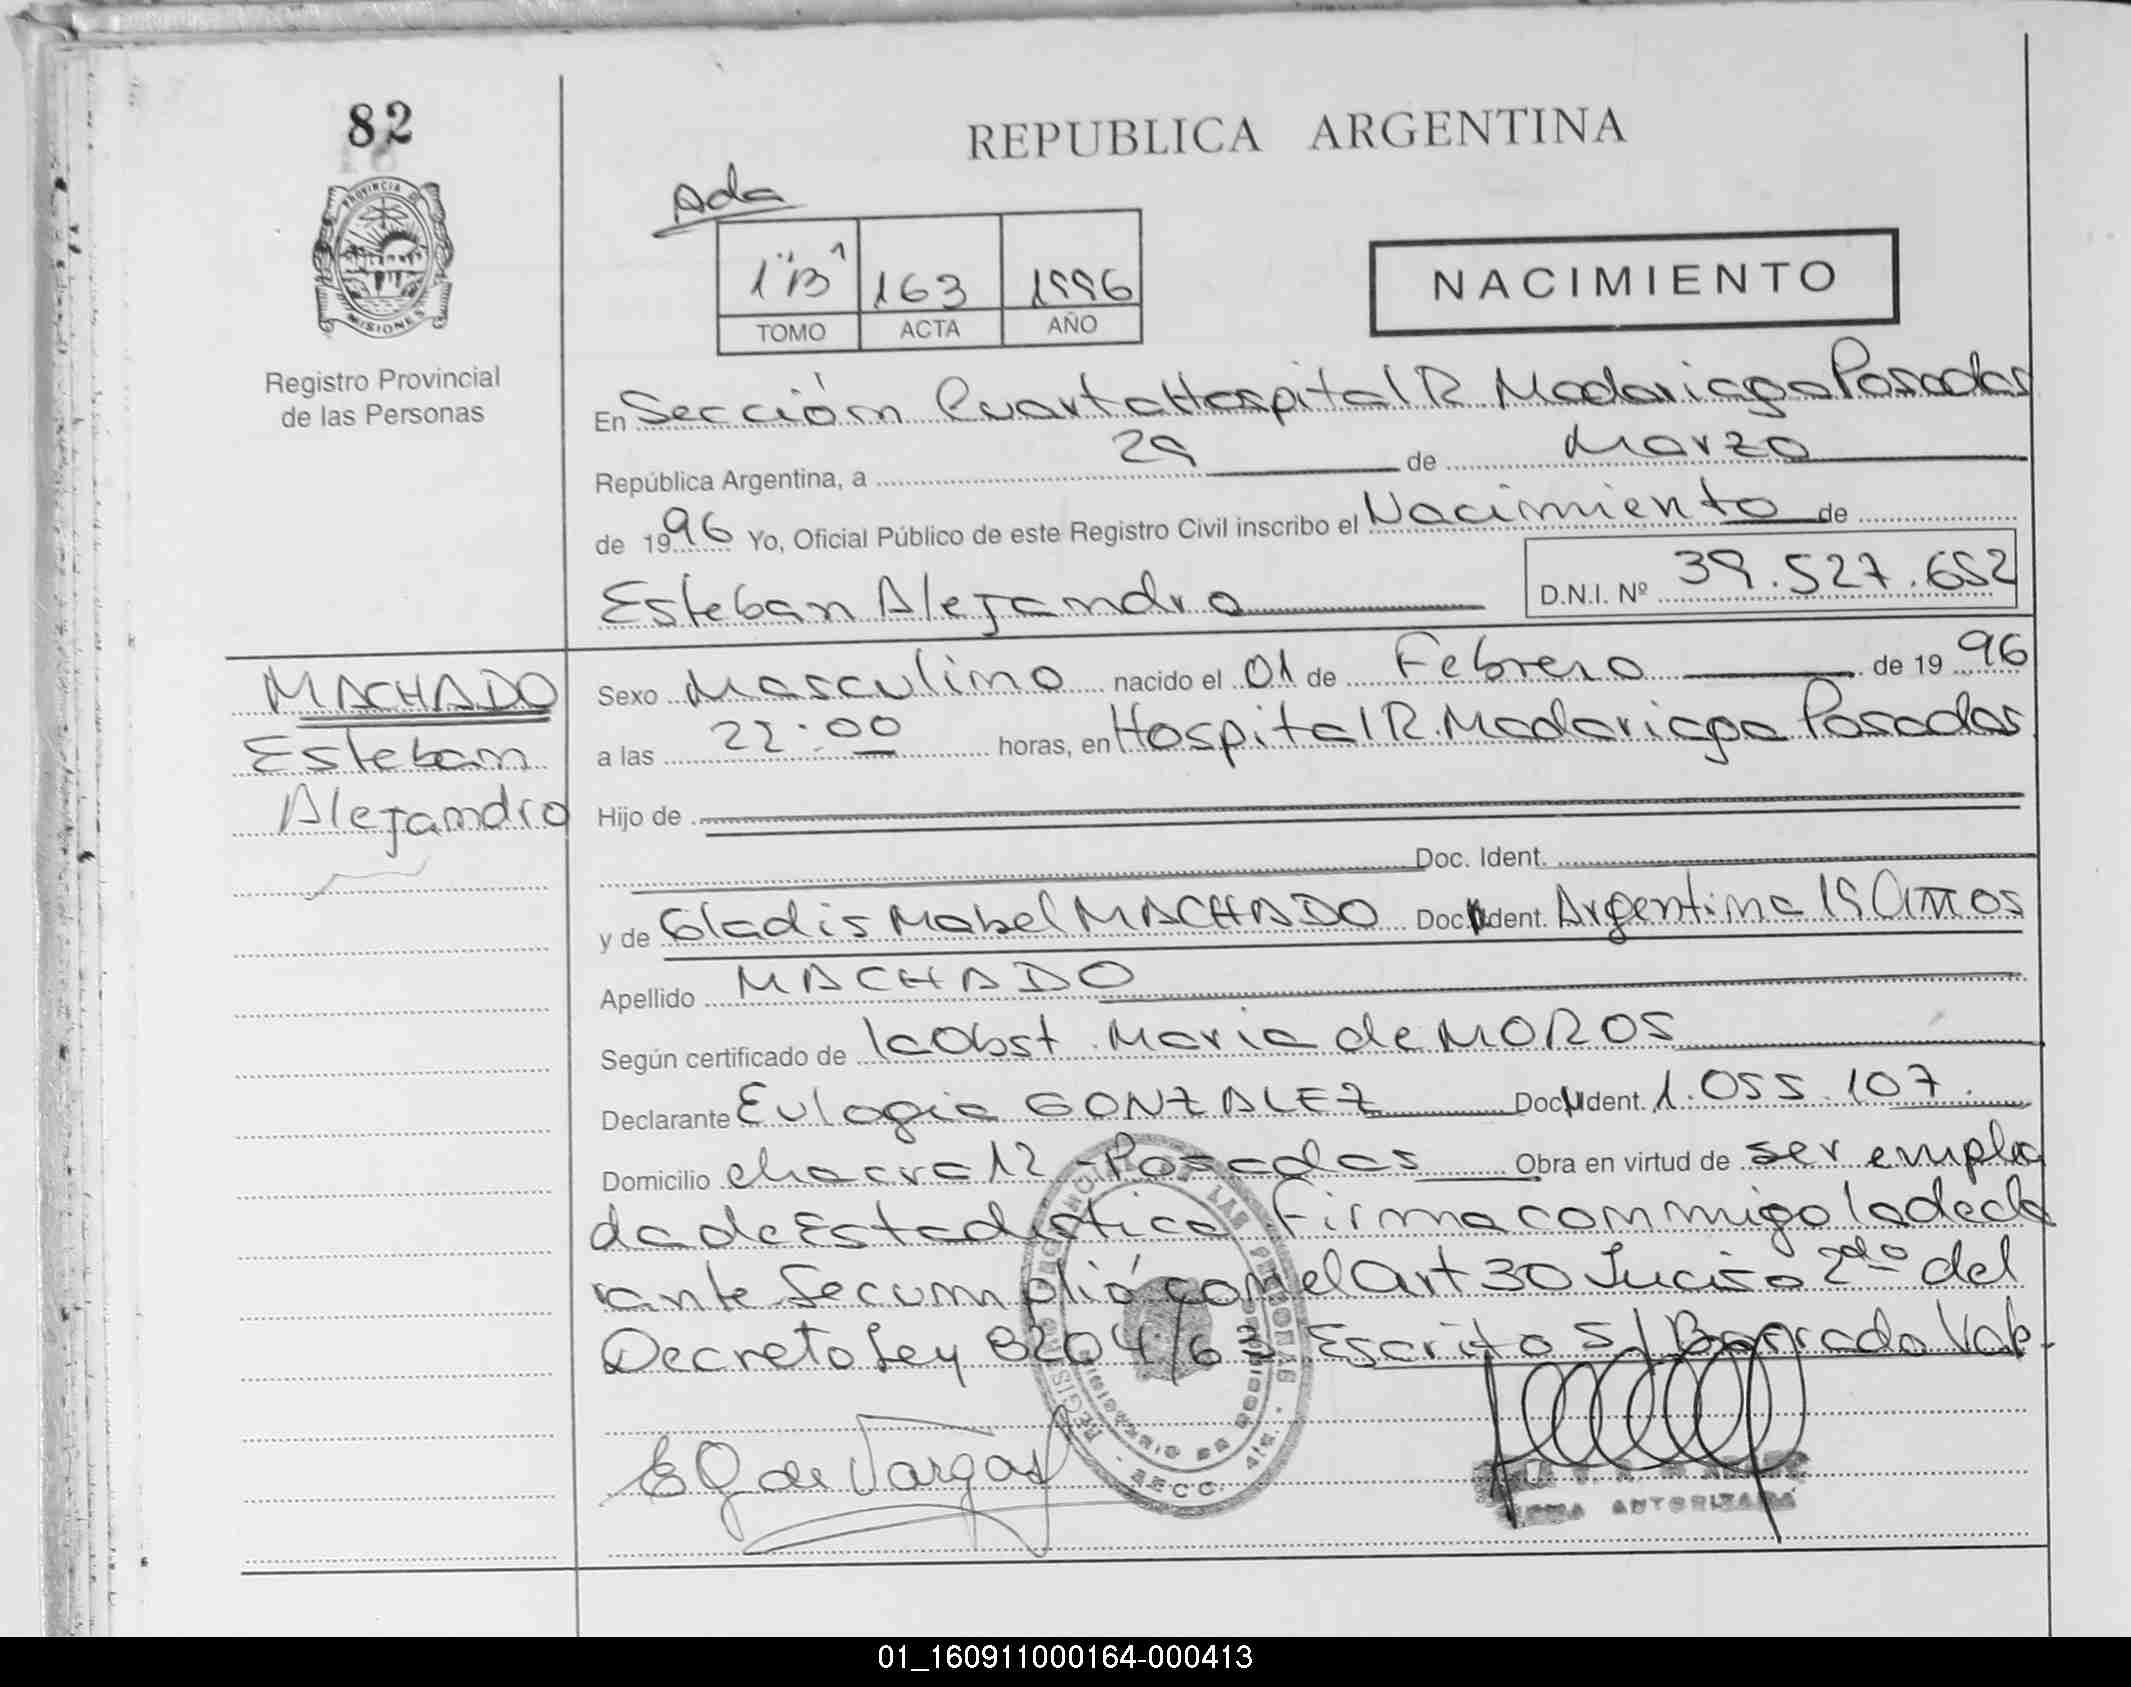 82
REPUBLICA ARGENTINA
Ada
PROVINCIA DE
MISIONES
1 "B" 163 1996
TOMO ACTA AÑO
NACIMIENTO
Registro Provincial
de las Personas
En Sección Cuarta Hospital R. Madariaga Posadas
República Argentina, a 29 de Marzo
de 1996 Yo, Oficial Público de este Registro Civil inscribo el Nacimiento de
Esteban Alejandro D.N.I. Nº 39.527.652
MACHADO
Esteban
Alejandro
Sexo Masculino nacido el 01 de Febrero de 1996
a las 22:00 horas, en Hospital R. Madariaga Posadas
Hijo de
Doc. Ident.
y de Gladis Mabel MACHADO Doc. Ident. Argentina 19 Años
Apellido MACHADO
Según certificado de la Obst. Maria de MOROS
Declarante Eulogia GONZALEZ Doc. Ident. 1.055.107.
Domicilio chacra 12 - Posadas Obra en virtud de ser emplea
da de Estadistica Firma conmigo la decla
rante Se cumplió con el Art 30 Inciso 2do del
Decreto Ley 8204/63 Escrito S/ Borrado Vale.
E G de Vargas
FIRMA AUTORIZADA
01_160911000164-000413